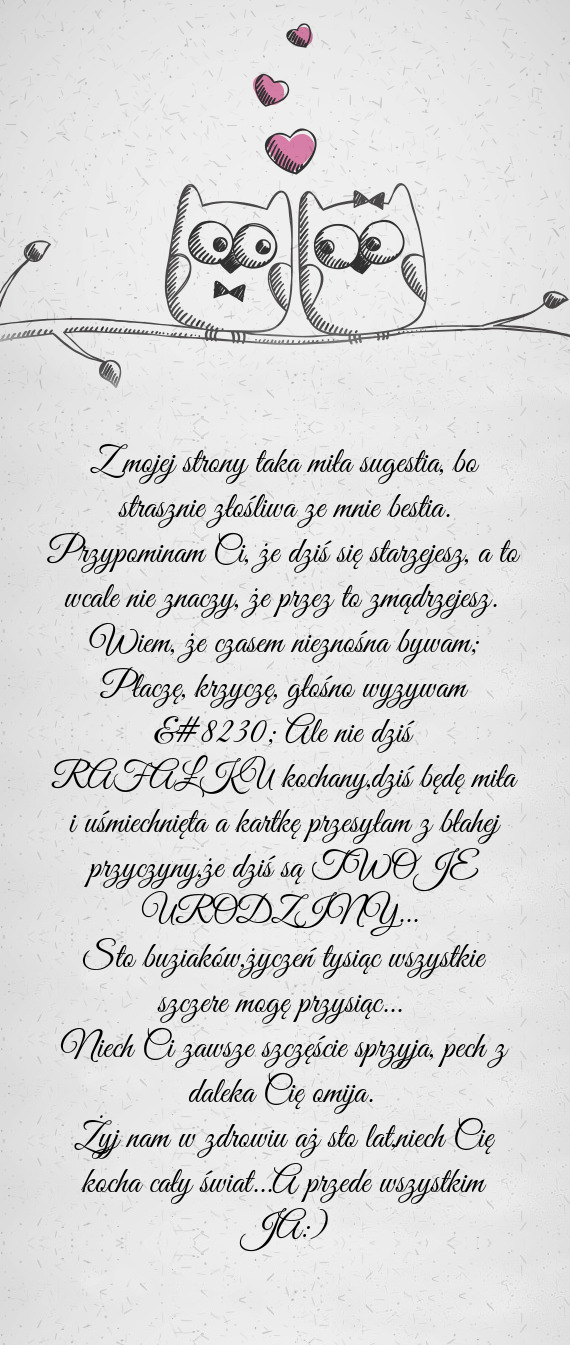 Z mojej strony taka miła sugestia, bo
strasznie złośliwa ze mnie bestia.
Przypominam Ci, że dziś się starzejesz, a to
wcale nie znaczy, że przez to zmądrzejesz.
Wiem, że czasem nieznośna bywam;
Płaczę, krzyczę, głośno wyzywam
&#8230; Ale nie dziś
RAFAŁKU kochany,dziś będę miła
i uśmiechnięta a kartkę przesyłam z błahej
przyczyny,że dziś są TWOJE
URODZINY...
Sto buziaków,życzeń tysiąc wszystkie
szczere mogę przysiąc...
Niech Ci zawsze szczęście sprzyja, pech z
daleka Cię omija.
Żyj nam w zdrowiu aż sto lat,niech Cię
kocha cały świat...A przede wszystkim
JA:)